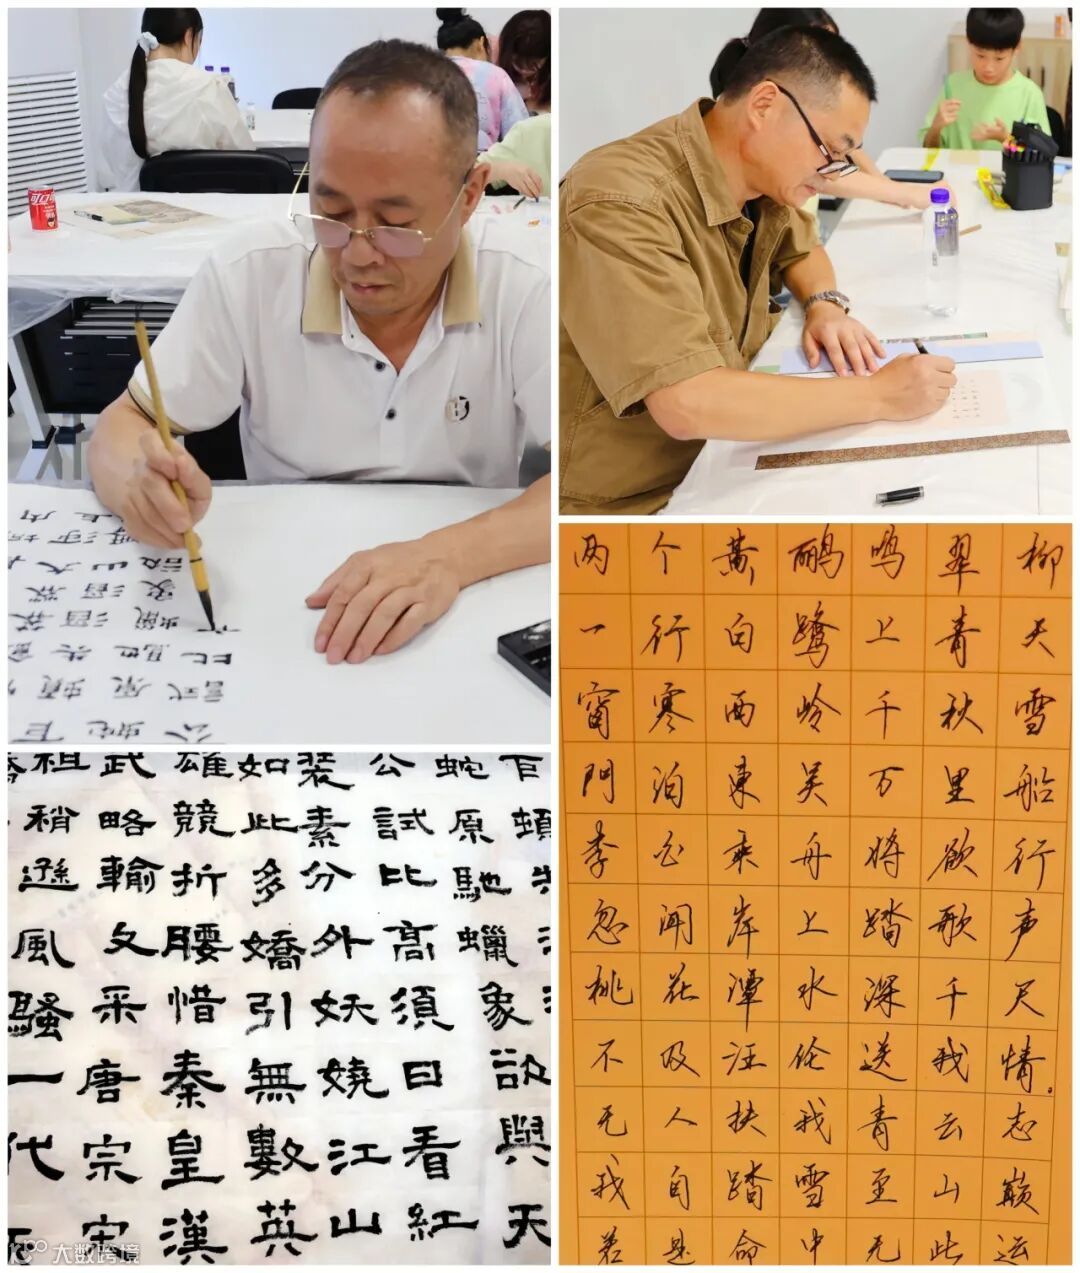 可口可乐
蛇原馳蠟象欲與天
公試比高須日看紅
装素分外妖娆江山
如此多嬌引無數英
雄競折腰惜秦皇漢
武略輸文采唐宗宋
祖稍遜風騷一代
两个黄鹂鸣翠柳
一行白鹭上青天
窗寒西岭千秋雪
門泊東吴万里船
李白乘舟将欲行
忽闻岸上踏歌声
桃花潭水深千尺
不及汪伦送我情
无人扶我青云志
我自踏雪至山巅
若是命中无此运
大数跨境